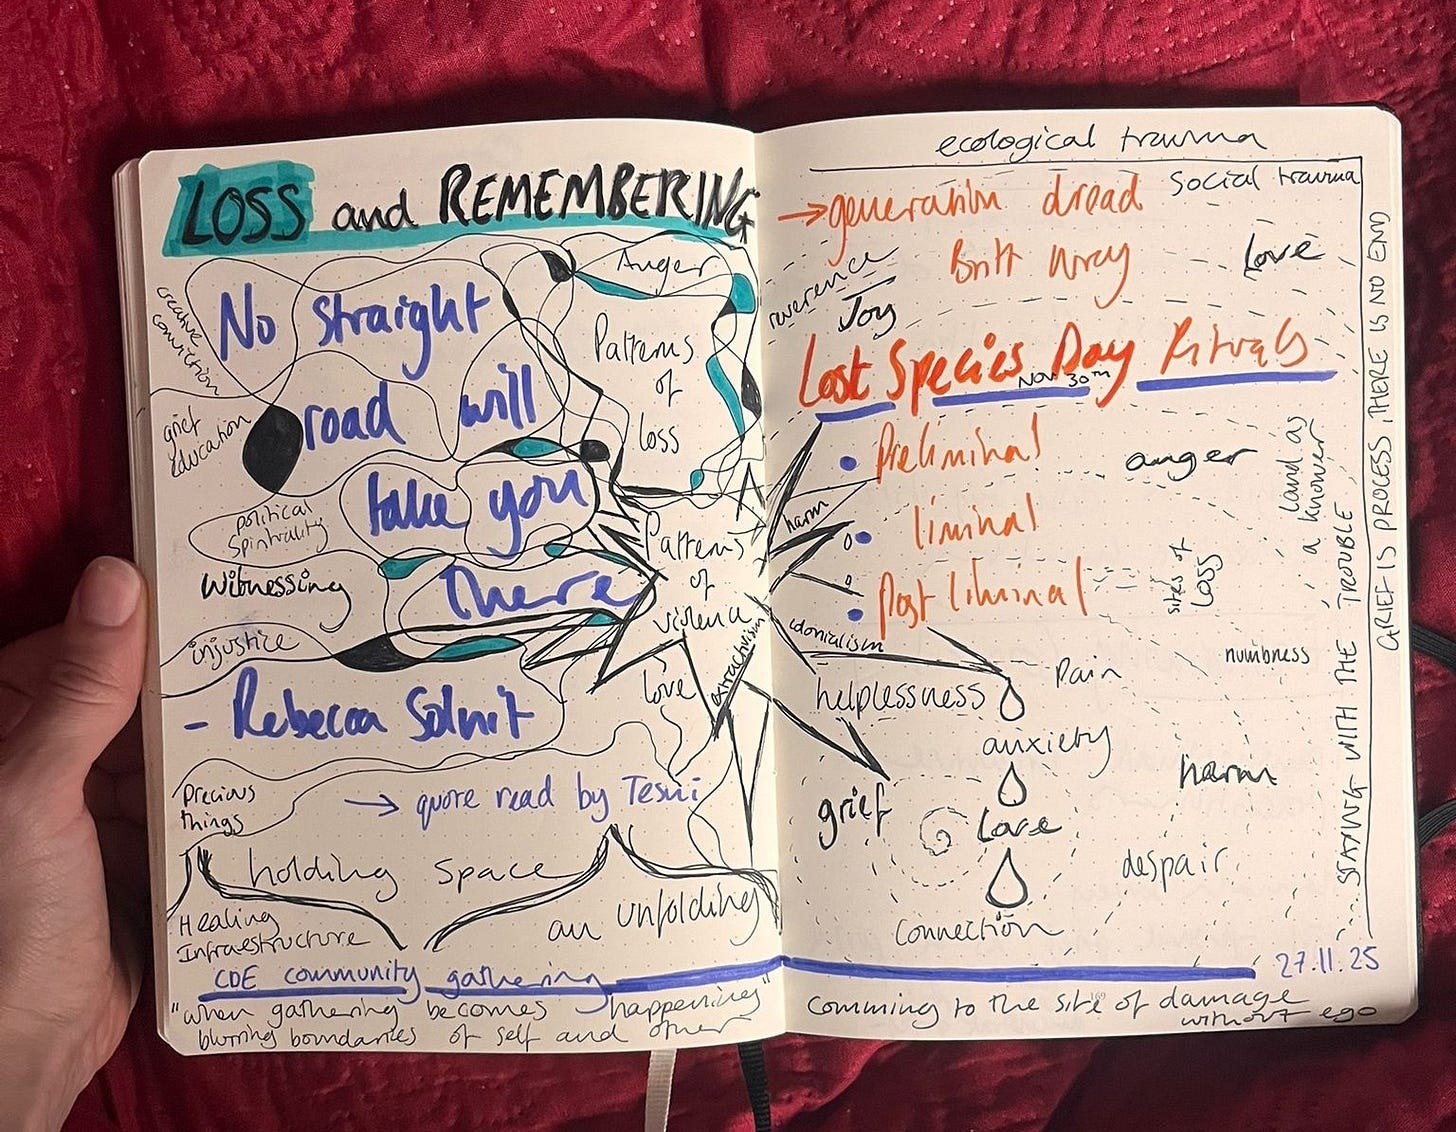 LOSS and REMEMBERING
creative conviction
No straight
road will
take you
there
- Rebecca Solnit
Anger
Patterns
of
loss
grief
education
political
Spirituality
Witnessing
injustice
Patterns
of
violence
love
extractivism
Precious
things
→ quote read by
holding space
Healing
Infraestructure
an unfolding
CDE community gathering
"when gathering becomes happenings"
blurring boundaries of self and other
ecological trauma
Social trauma
→ generation dread
Britt Wray
reverence
Joy
Love
Lost Species Day Rituals
Nov 30th
• Preliminal
• liminal
• Post liminal
harm
colonialism
anger
land as
a knower
sites of
loss
numbness
Pain
helplessness
anxiety
harm
grief
Love
despair
Connection
STAYING WITH THE TROUBLE
GRIEF IS PROCESS, THERE IS NO END
27.11.25
comming to the site of damage
without ego